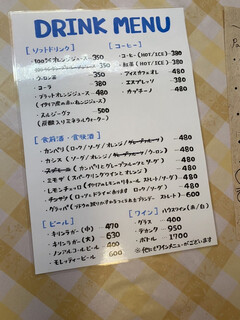 DRINK MENU
[ソフトドリンク]
100%オレンジジュース 350
350
ウーロン茶 350
コーラ 380
ブラッドオレンジジュース 480
(イタリア産の赤いオレンジジュース)
480
(炭酸入りミネラルウォーター)
[コーヒー]
コーヒー(HOT/ICE) 380
紅茶(HOT/ICE) 380
アイスカフェオレ 480
エスプレッソ 380
カプチーノ 480
[食前酒・食後酒]
カンパリ(ロック/ソーダ/オレンジ/グレープフルーツ) 480
カシス(ソーダ/オレンジ/グレープフルーツ/ウーロン) 480
スプモーニ(カンパリとグレープフルーツとソーダ) 480
ミモザ(スパークリングワインとオレンジ) 480
レモンチェッロ ストレート/ソーダ) 480
ロック/ソーダ) 480
グラッパ ストレート) 600
[ビール]
キリンラガー(中) 470
キリンラガー(大) 630
ノンアルコールビール 400
モレッティービール 600
[ワイン] ハウスワイン(赤/白)
グラス 400
デカンタ 950
ボトル 1700
※他にもワインメニューがございます